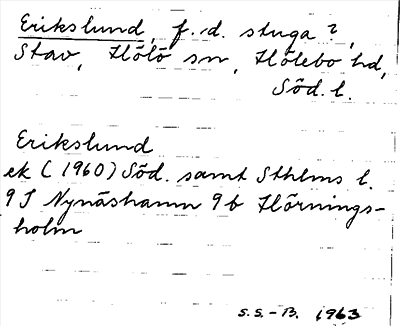 Erikslund, f. d. stuga?,
Stav, Hölö sn, Hölebo hd,
Söd. l.
Erikslund
ek (1960) Söd. samt Sthlms l.
9 I Nynäshamn 9b Hörnings-
holm
S.S.-B. 1963